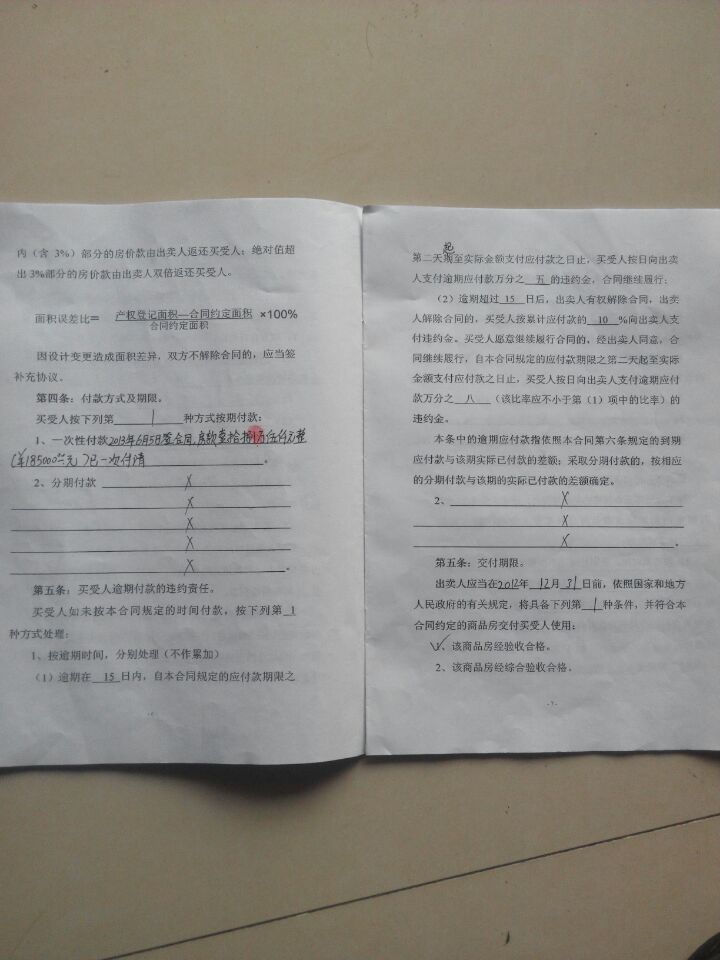 内（含 3%）部分的房价款由出卖人返还买受人；绝对值超
出3%部分的房价款由出卖人双倍返还买受人。
面积误差比＝ 产权登记面积—合同约定面积 ×100%
合同约定面积
因设计变更造成面积差异，双方不解除合同的，应当签
补充协议。
第四条：付款方式及期限。
买受人按下列第 1 种方式按期付款：
1、一次性付款2013年6月5日签合同,房款壹拾捌万伍仟元整
(¥185000元)已一次付清。
2、分期付款 X
X
X
X
X。
第五条：买受人逾期付款的违约责任。
买受人如未按本合同规定的时间付款，按下列第 1
种方式处理：
1、按逾期时间，分别处理（不作累加）
（1）逾期在 15 日内，自本合同规定的应付款期限之
起
第二天期至实际金额支付应付款之日止，买受人按日向出卖
人支付逾期应付款万分之 五 的违约金，合同继续履行；
（2）逾期超过 15 日后，出卖人有权解除合同，出卖
人解除合同的，买受人按累计应付款的 10 %向出卖人支
付违约金。买受人愿意继续履行合同的，经出卖人同意，合
同继续履行，自本合同规定的应付款期限之第二天起至实际
金额支付应付款之日止，买受人按日向出卖人支付逾期应付
款万分之 八 （该比率应不小于第（1）项中的比率）的
违约金。
本条中的逾期应付款指依照本合同第六条规定的到期
应付款与该期实际已付款的差额；采取分期付款的，按相应
的分期付款与该期的实际已付款的差额确定。
2、 X
X
X。
第五条：交付期限。
出卖人应当在2012年 12月 31日前，依照国家和地方
人民政府的有关规定，将具备下列第 1 种条件，并符合本
合同约定的商品房交付买受人使用：
1、该商品房经验收合格。
2、该商品房经综合验收合格。
-7-